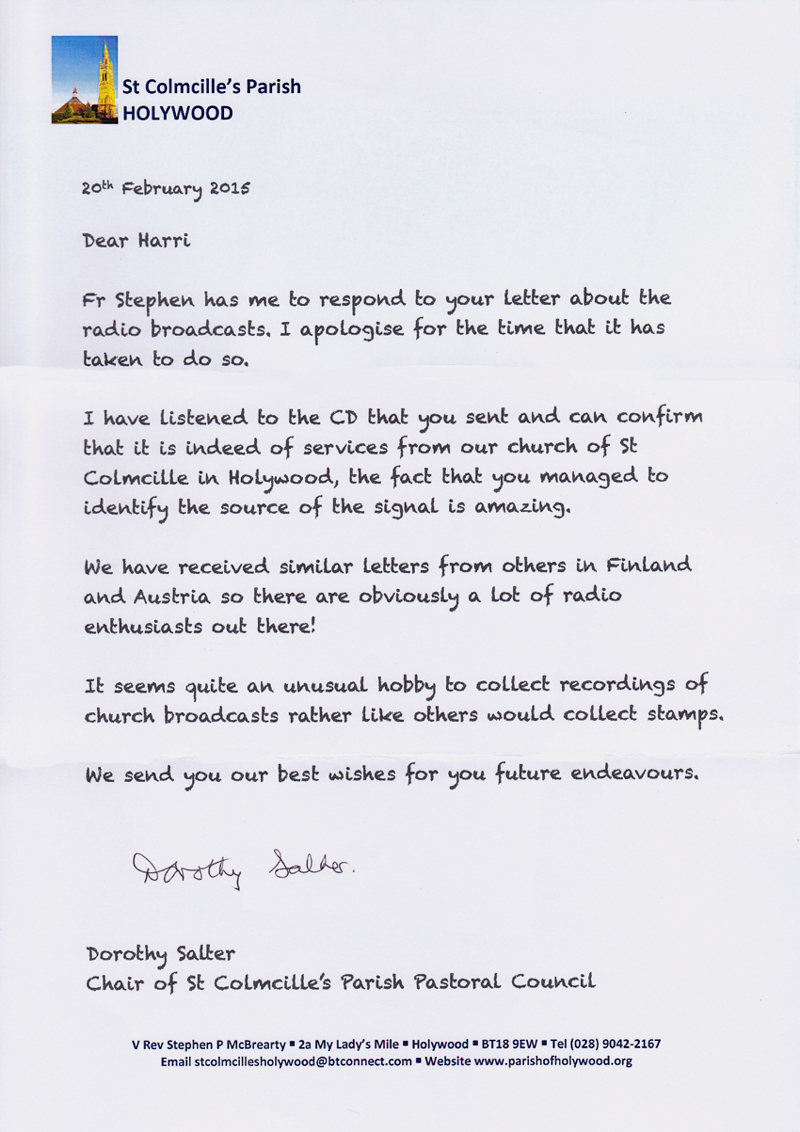 St Colmcille's Parish
HOLYWOOD
20th February 2015
Dear Harri
Fr Stephen has me to respond to your letter about the
radio broadcasts. I apologise for the time that it has
taken to do so.
I have listened to the CD that you sent and can confirm
that it is indeed of services from our church of St
Colmcille in Holywood, the fact that you managed to
identify the source of the signal is amazing.
We have received similar letters from others in Finland
and Austria so there are obviously a lot of radio
enthusiasts out there!
It seems quite an unusual hobby to collect recordings of
church broadcasts rather like others would collect stamps.
We send you our best wishes for you future endeavours.
Dorothy Salter.
Dorothy Salter
Chair of St Colmcille's Parish Pastoral Council
V Rev Stephen P McBrearty ▪ 2a My Lady's Mile ▪ Holywood ▪ BT18 9EW ▪ Tel (028) 9042-2167
Email stcolmcillesholywood@btconnect.com ▪ Website www.parishofholywood.org